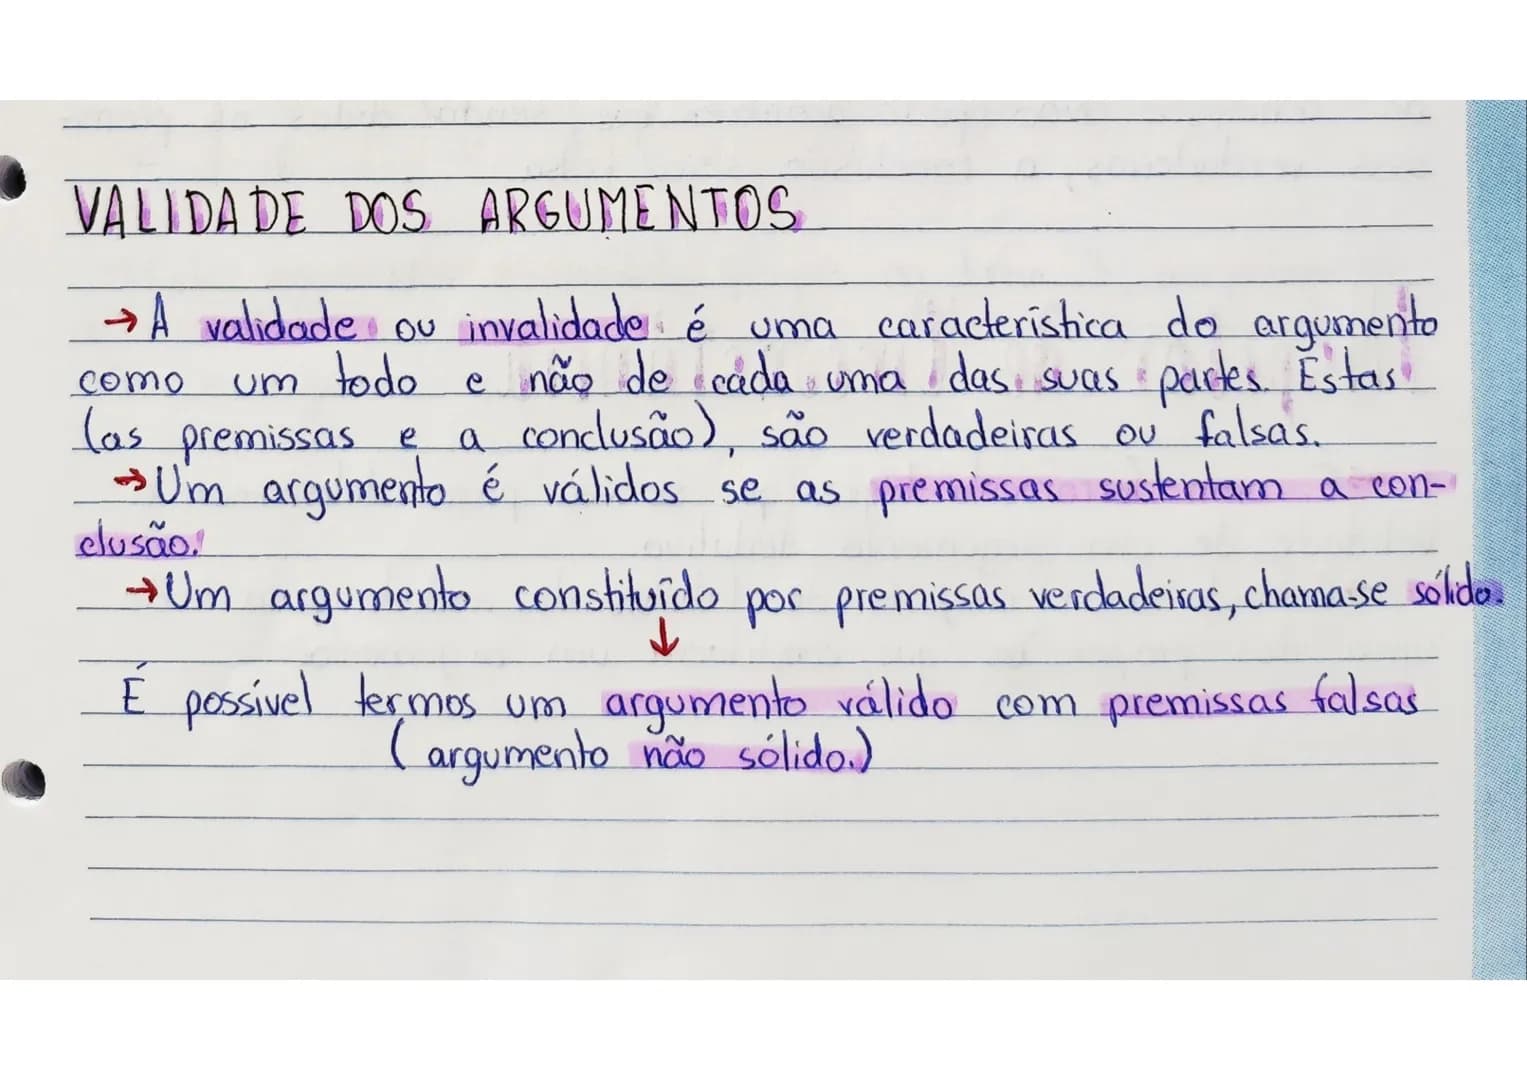 VALIDADE DOS ARGUMENTOS
→ A validade ou invalidade é uma característica do argumento
como um todo e não de cada uma das suas partes. Estas
(as premissas e a conclusão), são verdadeiras ou falsas.
→ Um argumento é válidos se as premissas sustentam a con-
clusão.
→ Um argumento constituído por premissas verdadeiras, chama-se sólido.
↓
É possível termos um argumento válido com premissas falsas
(argumento não sólido.)